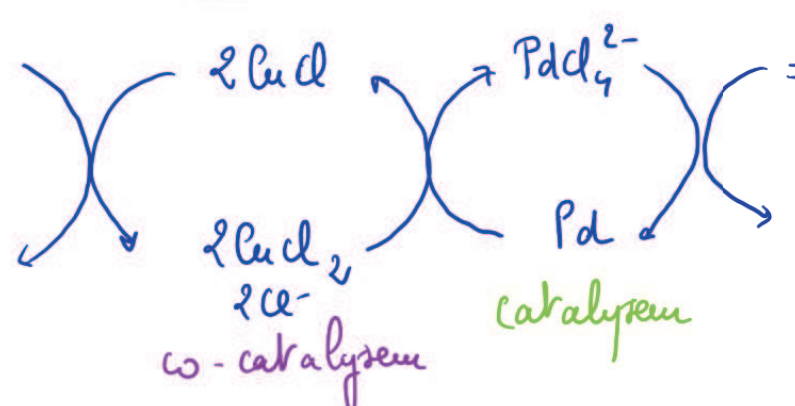 2CuCl PdCl₄²⁻
2CuCl₂ Pd
2Cl⁻ catalyseur
co-catalyseur